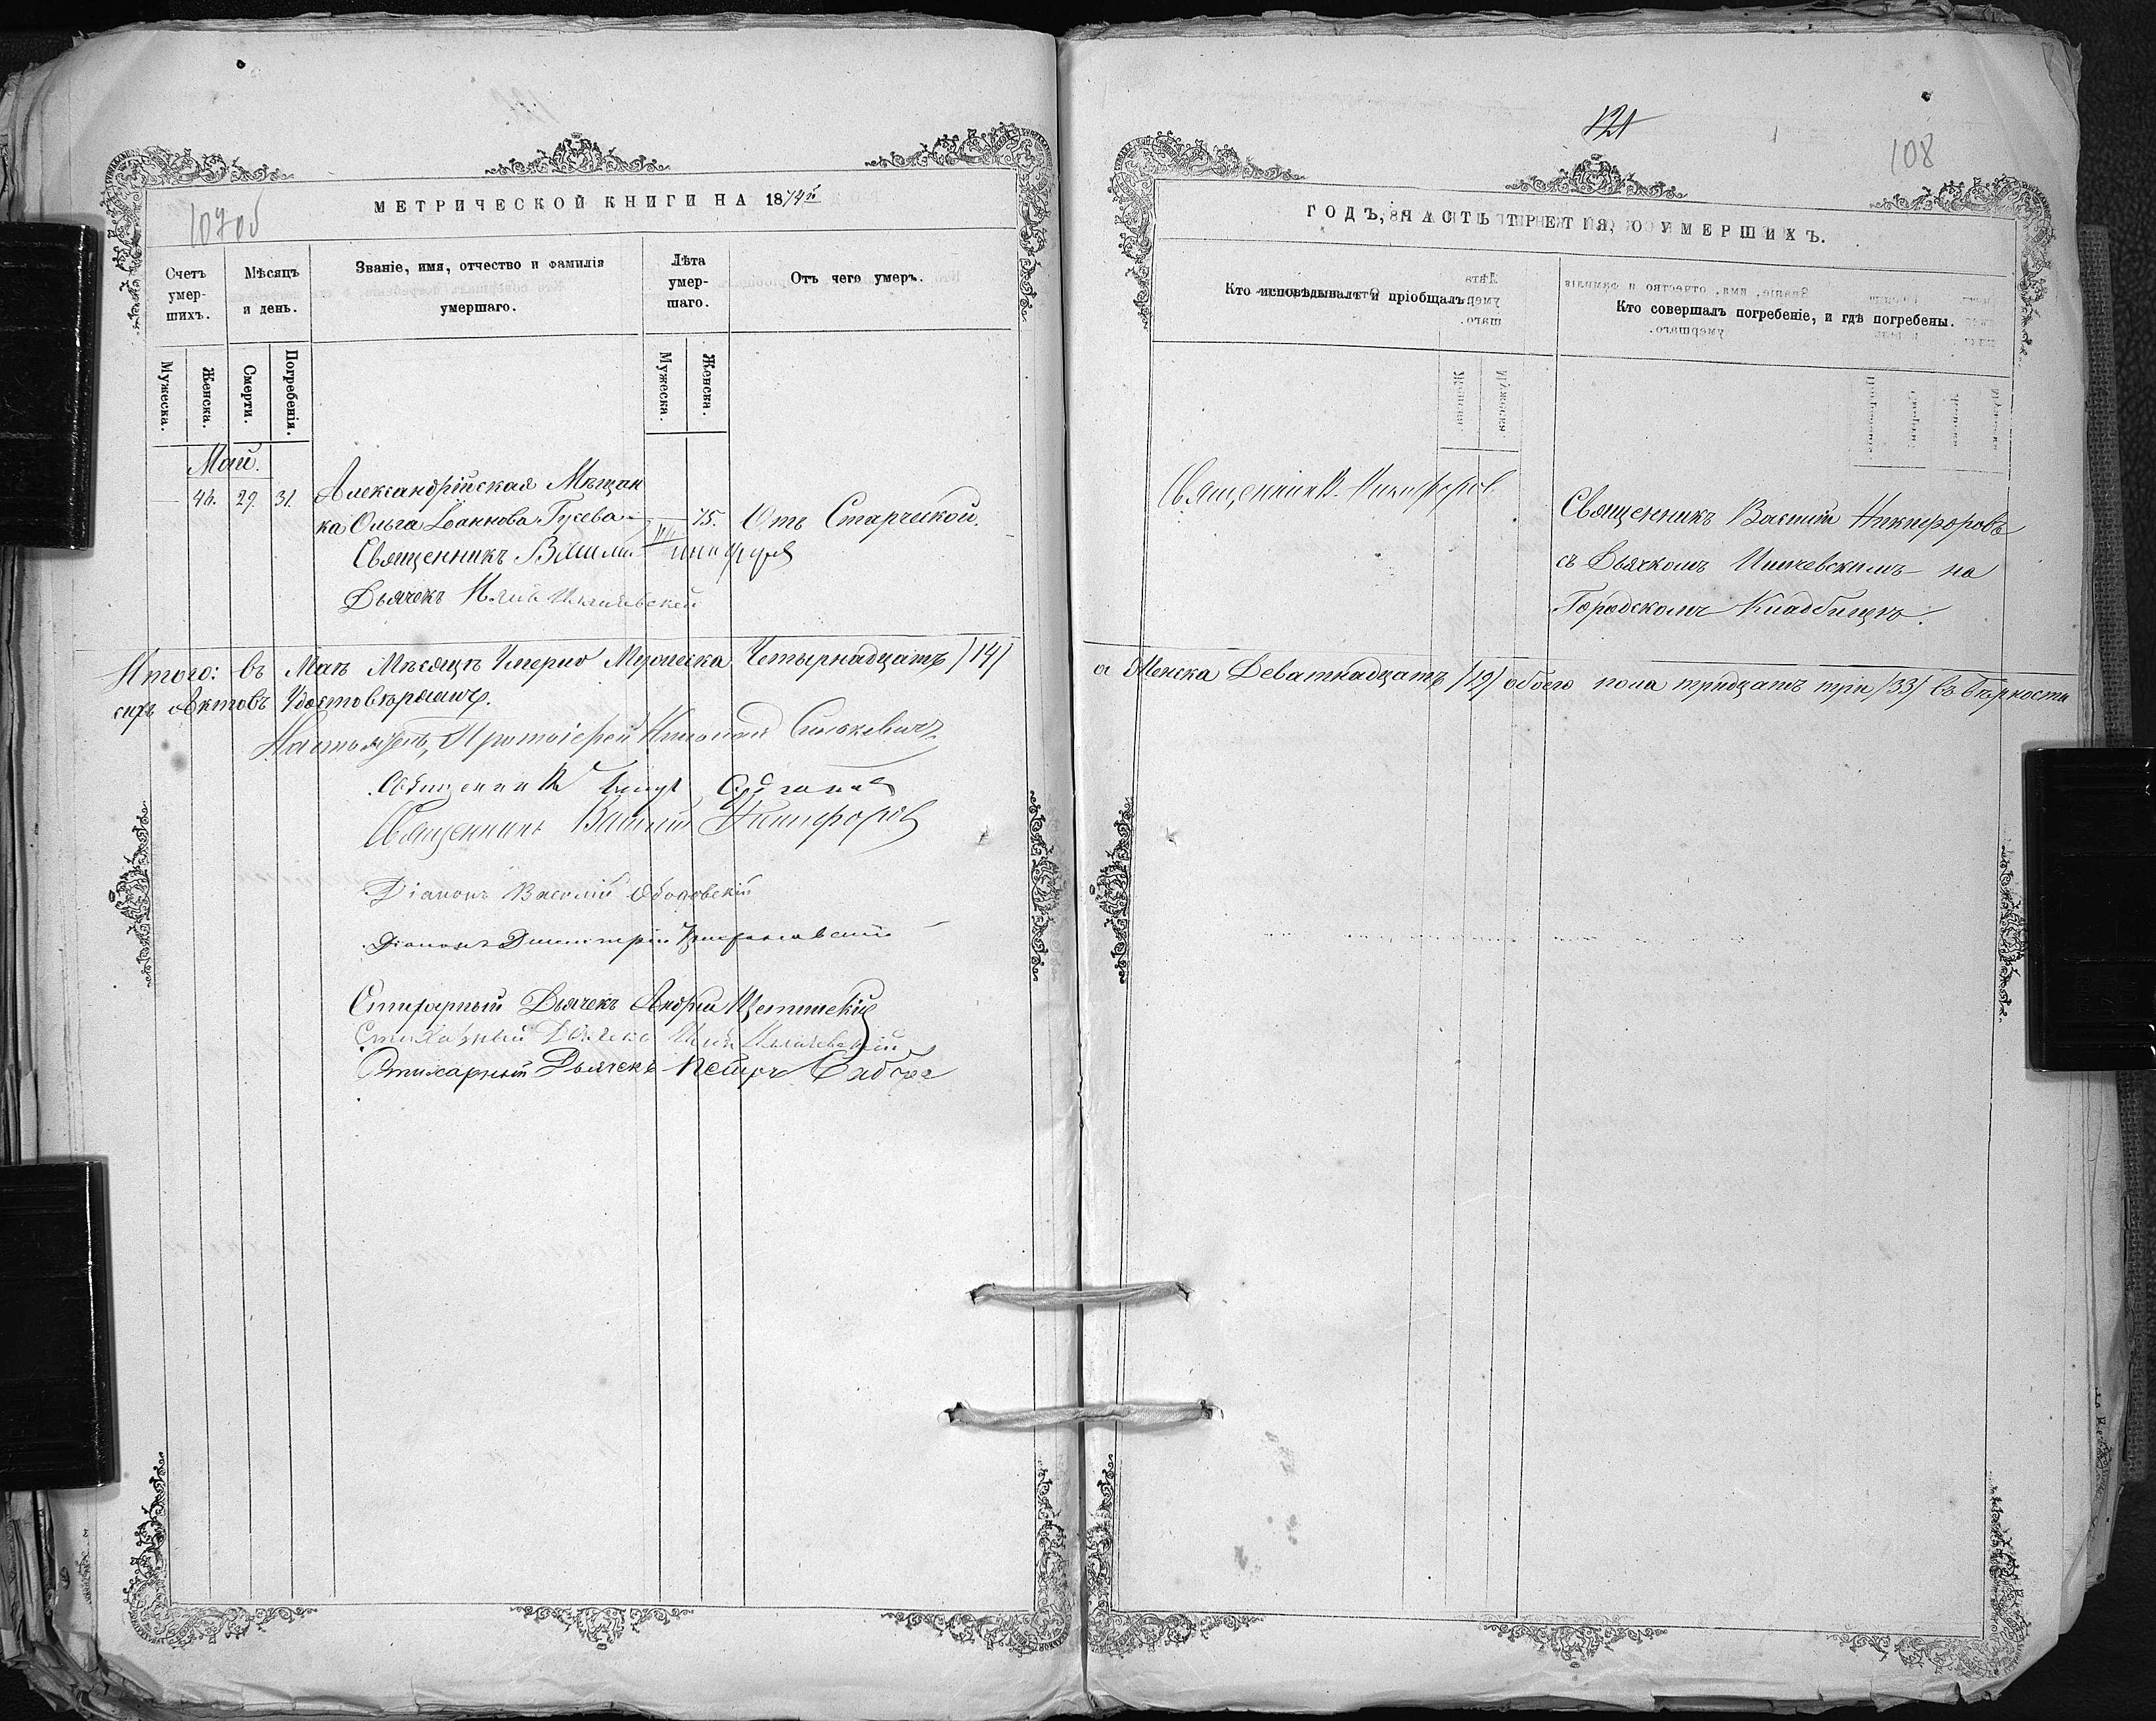 107об
МЕТРИЧЕСКОЙ КНИГИ НА 1874й
Счетъ умер-шихъ.
Мѣсяцъ и день.
Званіе, имя, отчество и фамилія умершаго.
Лѣта умер-шаго.
Отъ чего умеръ.
Мужеска.
Женска.
Смерти.
Погребенія.
Мужеска.
Женска.
Май.
46. 29. 31. Александрійская Мѣщан
ка Ольга Іоаннова Гусева 75. Отъ Старческой.
Священникъ Василій Никифоровъ
Дьячекъ
Итого: въ Маѣ Мѣсяцѣ Умерло Мужеска Четырнадцать /14/
сихъ Актовъ Удостовѣряемъ.
Настоятель, Протоіерей
Священникъ
Священникъ Василій Никифоровъ
Діаконъ Василій
Діаконъ Димитрій
Стихарный Дьячекъ Андрей
Стихарный Дьячекъ
Стихарный Дьячекъ Петръ
121
108
ГОДЪ, ЧАСТЬ ТРЕТІЯ, О УМЕРШИХЪ.
Кто исповѣдывалъ и пріобщалъ.
Кто совершалъ погребеніе, и гдѣ погребены.
Священникъ Никифоровъ
Священникъ Василій Никифоровъ
съ Дьячкомъ на
Городскомъ Кладбищѣ.
а Женска Девятнадцать /19/ обоего пола тридцать три /33/ въ вѣрности